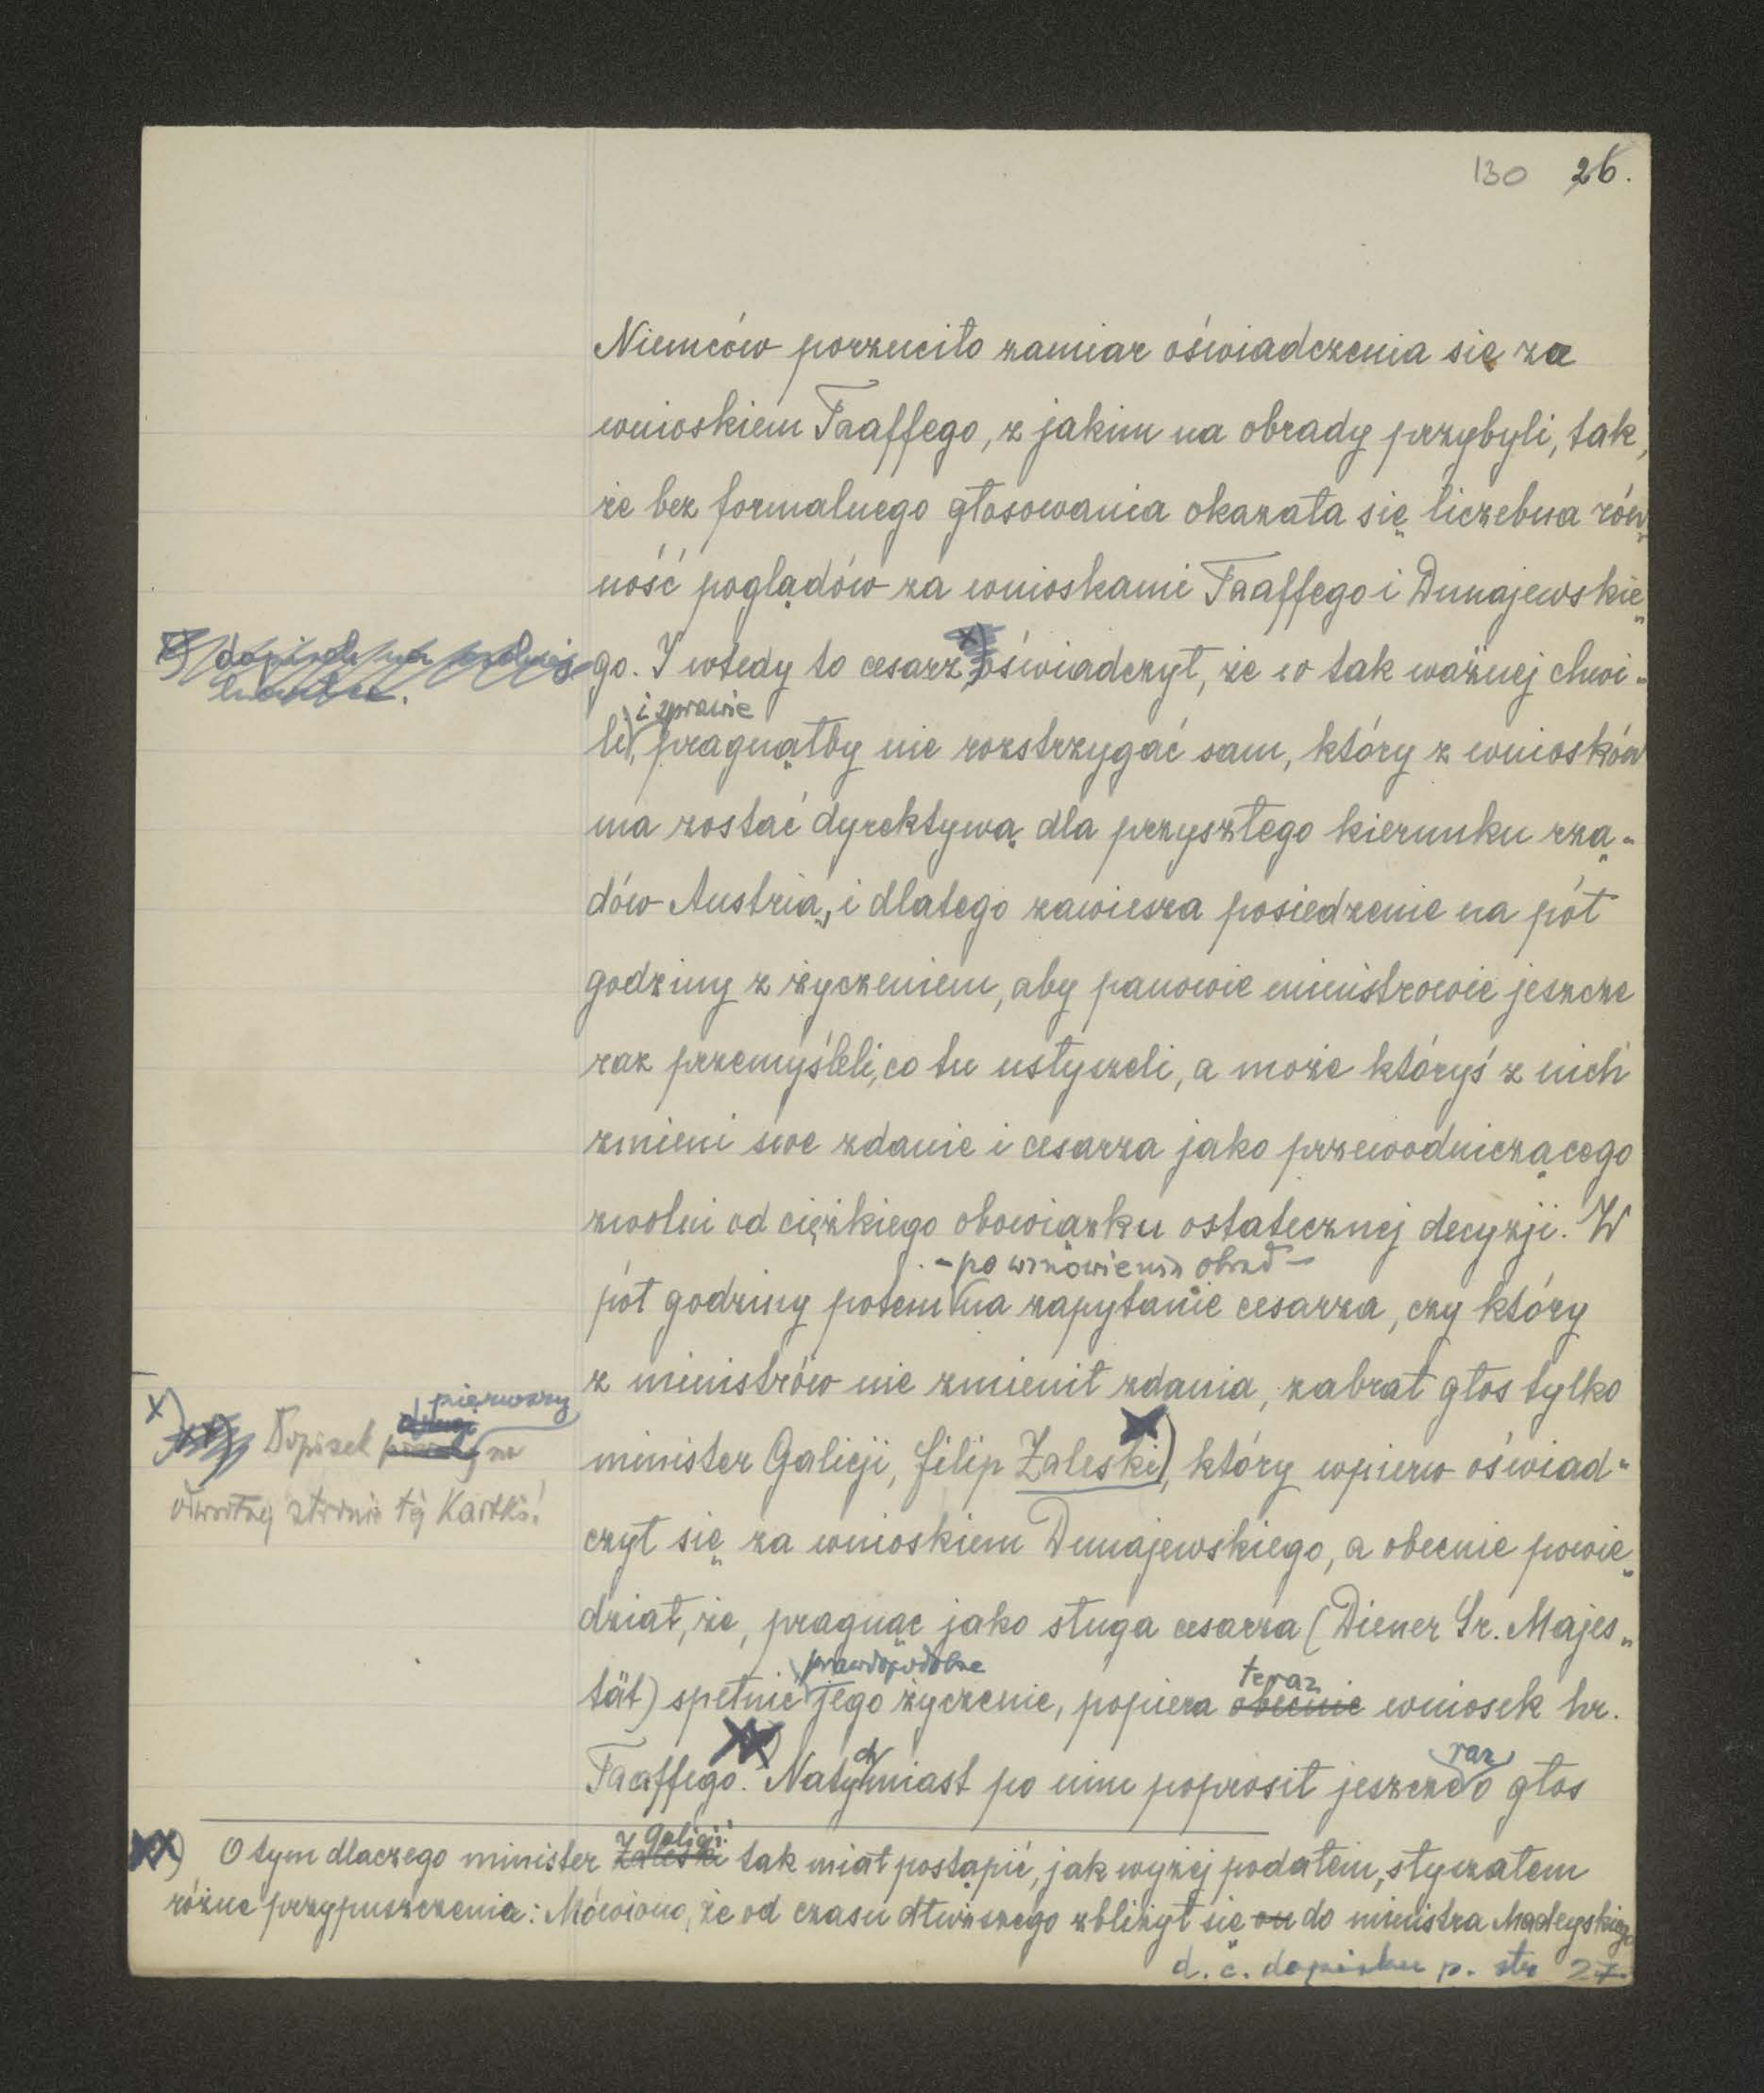 130 26.
Niemców porzuciło zamiar oświadczenia się za
wnioskiem Taaffego, z jakim na obrady przybyli, tak,
że bez formalnego głosowania okazała się liczebna rów„
ność poglądów za wnioskami Taaffego i Dunajewskie„
go. I wtedy to cesarz x) oświadczył, że w tak ważnej chwi„
i sprawie
li, pragnąłby nie rozstrzygać sam, który z wniosków
ma zostać dyrektywą dla przyszłego kierunku rzą„
dów Austrią, i dlatego zawiesza posiedzenie na pół
godziny z życzeniem, aby panowie ministrowie jeszcze
raz przemyśleli, co tu usłyszeli, a może któryś z nich
zmieni swe zdanie i cesarza jako przewodniczącego
zwolni od ciężkiego obowiązku ostatecznej decyzji. W
- po wznowieniu obrad -
pół godziny potem na zapytanie cesarza, czy który
z ministrów nie zmienił zdania, zabrał głos tylko
x) Dopisek pierwszy na
odwrotnej stronie tej kartki!
minister Galicji, Filip Zaleski), który wpierw oświad„
czył się za wnioskiem Dunajewskiego, a obecnie powie„
dział, że, pragnąc jako sługa cesarza (Diener Sr. Majes„
prawdopodobne teraz
tät) spełnić jego życzenie, popiera obecnie wniosek hr.
ch raz
Taaffego. xx) Natymiast po nim poprosił jeszcze o głos
Galicji
xx) O tym dlaczego minister Zaleski tak miał postąpić, jak wyżej podałem, słyszałem
różne przypuszczenia: Mówiono, że od czasu dłuższego zbliżył się on do ministra Madeyskiego
d. c. dopisku p. str 27.